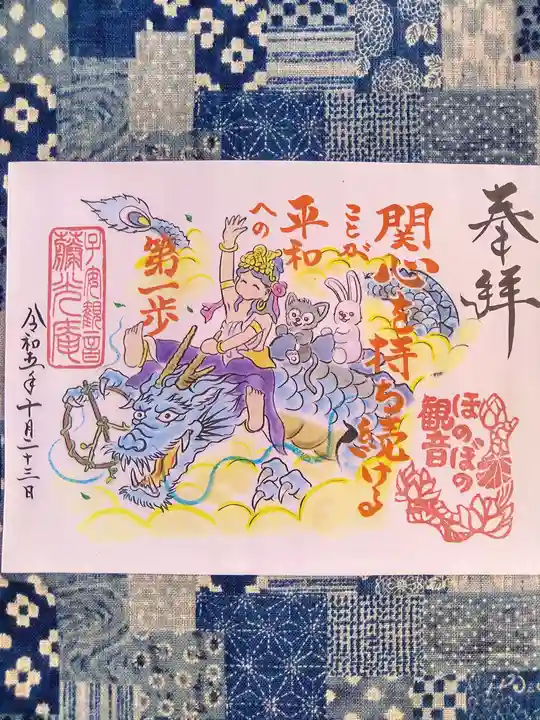 奉拝
ほのぼの
観音
関心を持ち続ける
ことが
平和
への
第一歩
子安観音
藤光庵
令和五年十月二十三日